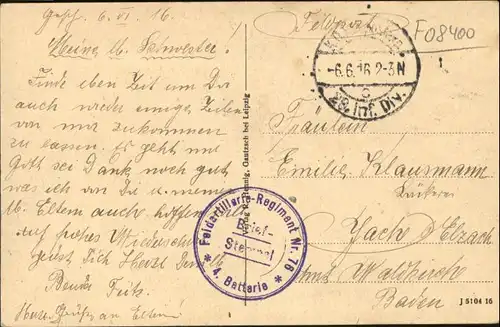 Gesch. 6. VI. 16
Meine lb. Schwester.
Finde eben Zeit um Dir
auch wieder einige Zeilen
von mir zukommen
zu lassen. Es geht mir
Gott sei Dank noch gut
was ich von Dir u. meinen
lb. Eltern auch hoffe.
auf frohes Wiedersehen
grüst Dich Herzl. Dein lb.
Bruder Fritz
Herz. Grüße an Eltern
Hennig, Gautzsch bei Leipzig
Feldartillerie-Regiment Nr. 76
Brief-
Stempel
* 4. Batterie *
Feldpost
F08400
-6.6.16 2-3N
c
28. Inf. Div.
Fräulein
Emilie Klausmann
Bäckerei
Jach b/ Elzach
Amt Waldkirch
Baden
J 5104 16